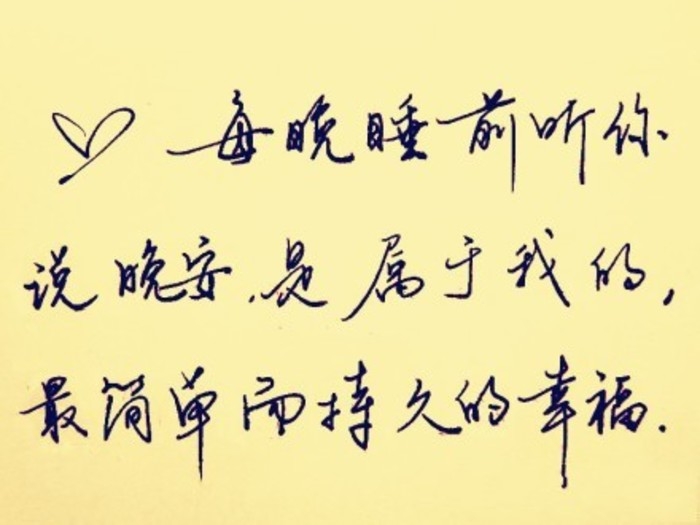 每晚睡前听你
说晚安,是属于我的,
最简单而持久的幸福.